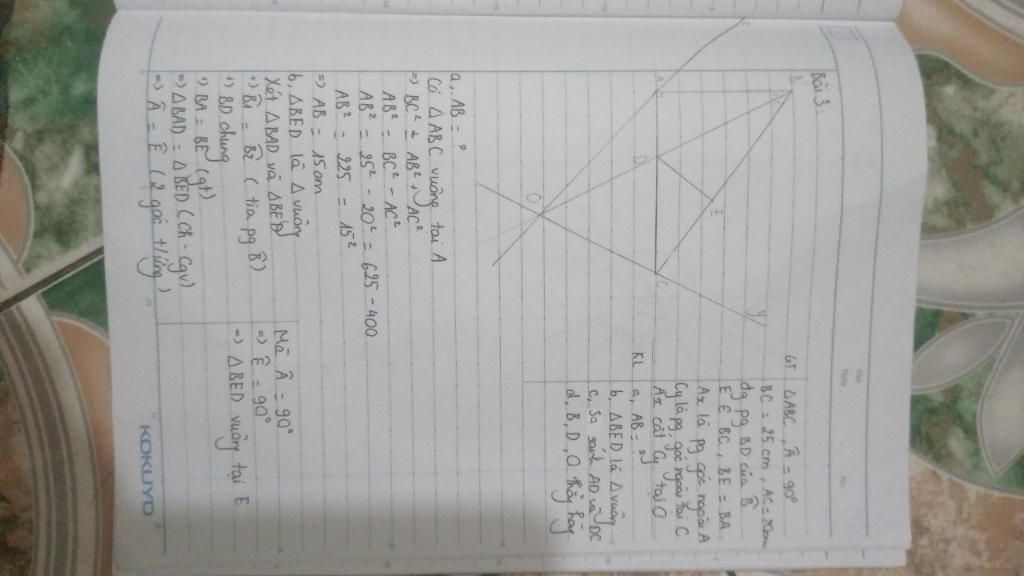 Thứ
Ngày
No.
Bài 3:
B
A
D
E
C
O
y
x
GT
ΔABC, Â = 90°
BC = 25cm, AC = 20cm
đg pg BD của B̂
E ∈ BC, BE = BA
Ax là pg góc ngoài A
Cy là pg góc ngoài tại C
Ax cắt Cy tại O
KL
a, AB = ?
b, ΔBED là Δ vuông
c, So sánh AD và DC
d, B, D, O thẳng hàng
a, AB = ?
Có ΔABC vuông tại A
=> BC² = AB² + AC²
AB² = BC² - AC²
AB² = 25² - 20² = 625 - 400
AB² = 225 = 15²
=> AB = 15cm
b, ΔBED là Δ vuông
Xét ΔBAD và ΔBED
+) B̂₁ = B̂₂ (tia pg B̂)
+) BD chung
+) BA = BE (gt)
=> ΔBAD = ΔBED (ch - cgv)
=> Â = Ê (2 góc t/ứng)
Mà Â = 90°
=> Ê = 90°
=> ΔBED vuông tại E
KOKUYO